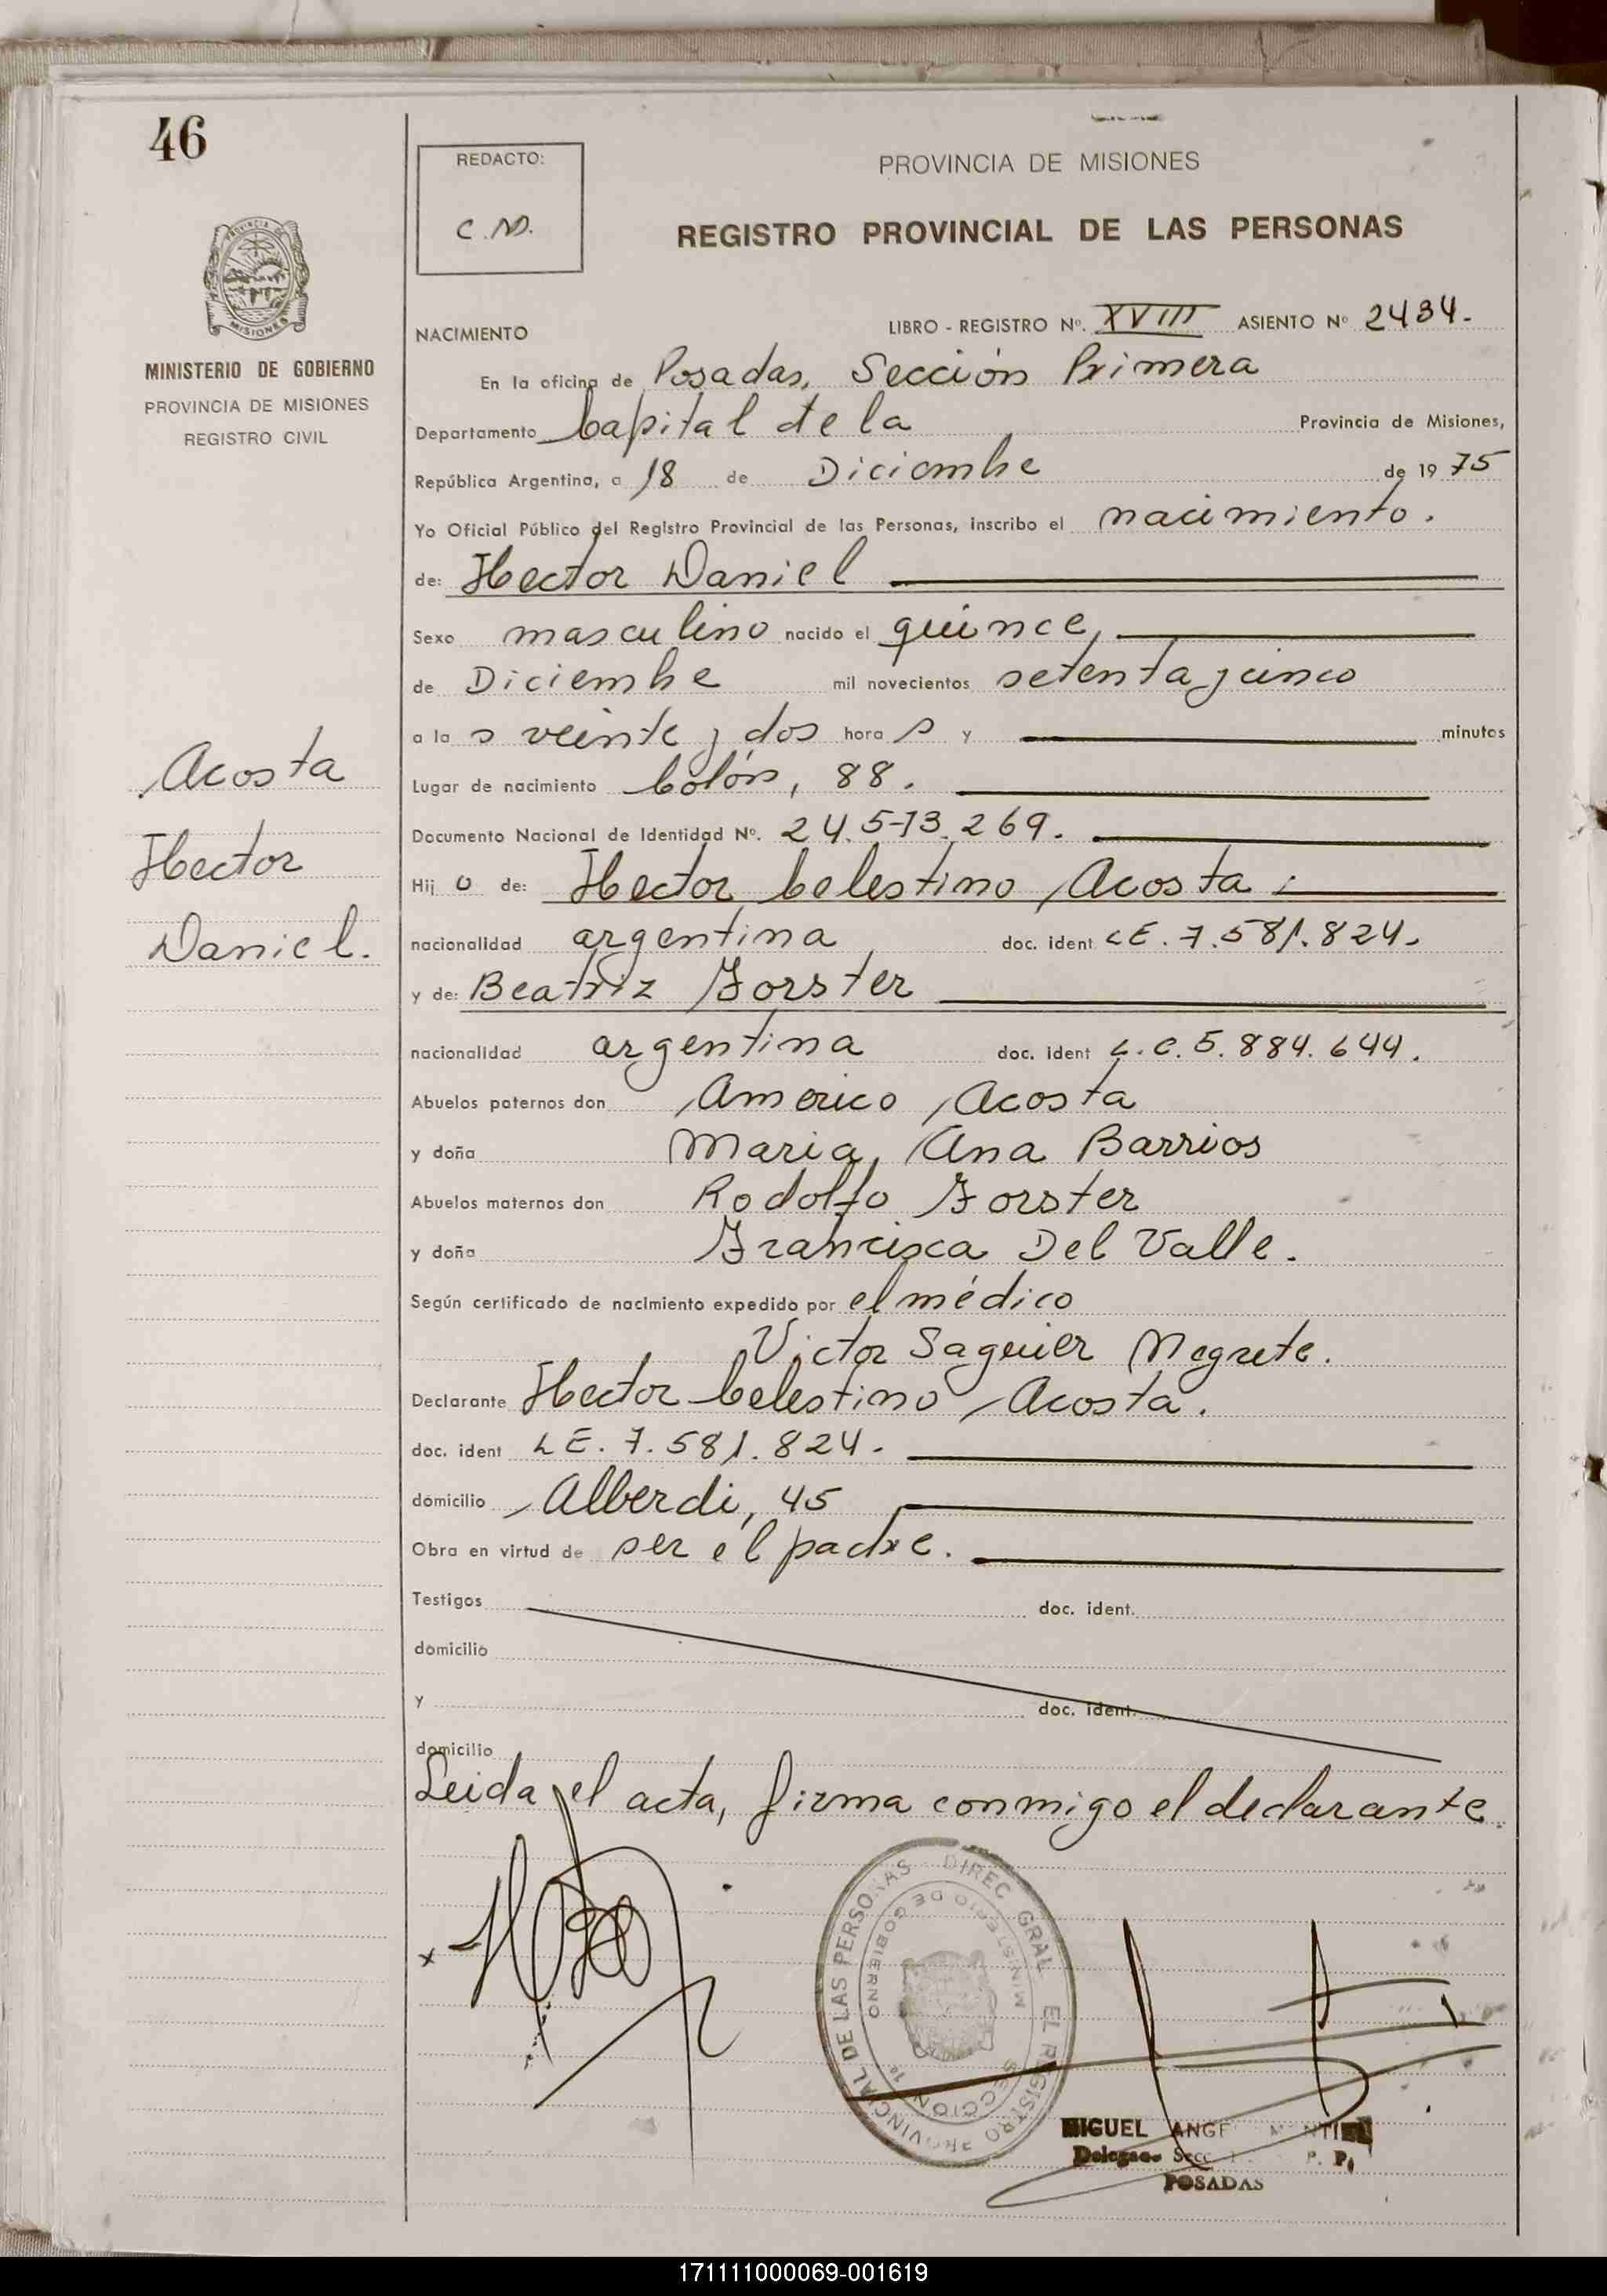 46
REDACTO:
C.M.
PROVINCIA DE MISIONES
REGISTRO PROVINCIAL DE LAS PERSONAS
MISIONES
MINISTERIO DE GOBIERNO
PROVINCIA DE MISIONES
REGISTRO CIVIL
NACIMIENTO
LIBRO - REGISTRO Nº. XVIII ASIENTO Nº 2434.
En la oficina de Posadas, Sección Primera
Departamento Capital de la Provincia de Misiones,
República Argentina, a 18 de Diciembre de 1975
Yo Oficial Público del Registro Provincial de las Personas, inscribo el nacimiento.
de: Hector Daniel
Sexo masculino nacido el quince,
de Diciembre mil novecientos setenta y cinco
a la s veinte y dos hora s y minutos
Lugar de nacimiento Colón, 88.
Documento Nacional de Identidad Nº. 24.573.269.
Hij o de: Hector Celestino Acosta.
nacionalidad argentina doc. ident LE. 7.581.824.
y de: Beatriz Forster
nacionalidad argentina doc. ident L.C. 5.884.644.
Abuelos paternos don Americo Acosta
y doña Maria Ana Barrios
Abuelos maternos don Rodolfo Forster
y doña Francisca Del Valle.
Según certificado de nacimiento expedido por el médico
Victor Saguier Negrete.
Declarante Hector Celestino Acosta.
doc. ident LE. 7.581.824.
domicilio Alberdi, 45
Obra en virtud de ser el padre.
Testigos doc. ident.
domicilio
y doc. ident.
domicilio
Leida el acta, firma conmigo el declarante.
Acosta
Hector
Daniel.
x
DIREC GRAL EL REGISTRO PROVINCIAL DE LAS PERSONAS
MINISTERIO DE GOBIERNO
SECCION 1ª
MIGUEL
POSADAS
171111000069-001619